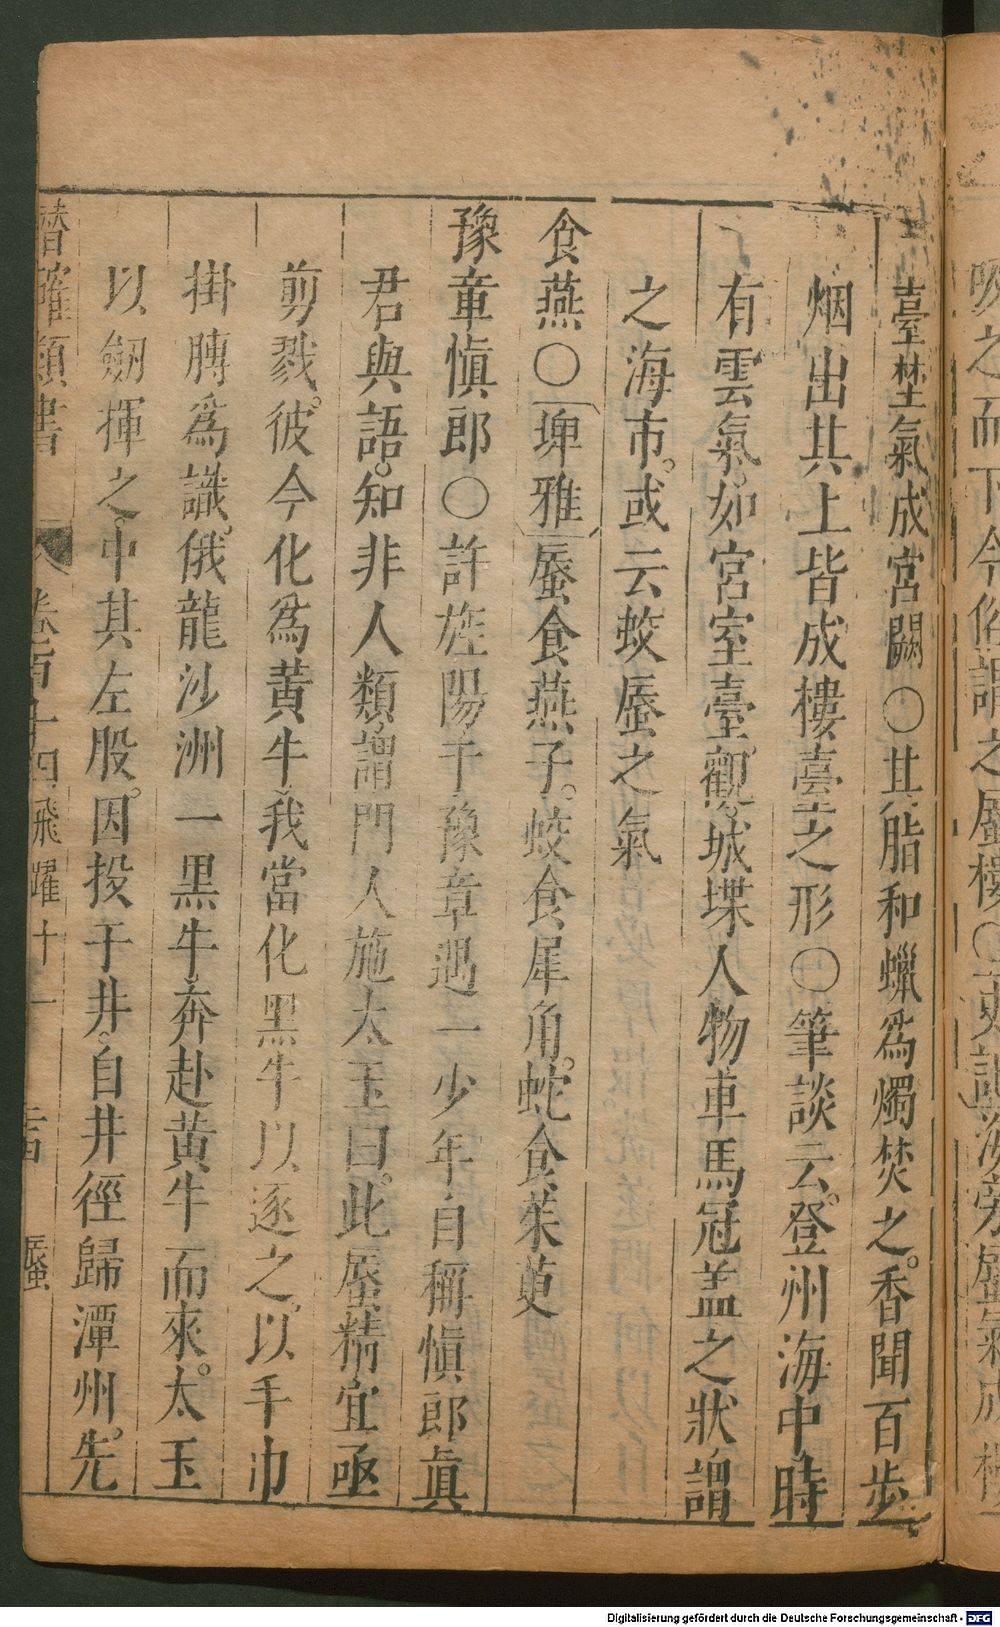 臺埜氣成宮闕〇其脂和蠟爲燭焚之。香聞百步
烟出其上皆成樓臺之形〇筆談云。登州海中時
有雲氣。如宮室臺觀。城堞人物車馬冠盖之狀謂
之海市。或云蛟蜃之氣
食燕〇埤雅蜃食燕子。蛟食犀角。蛇食茱萸
豫章愼郎〇許旌陽于豫章遇一少年自稱愼郎眞
君與語。知非人類謂門人施太玉曰。此蜃精宜亟
剪戮。彼今化爲黃牛。我當化黑牛以逐之。以手巾
掛膊爲識。俄龍沙洲一黒牛奔赴黃牛而來。太玉
以劔揮之。中其左股。因投于井。自井徑歸潭州。先
潛確類書 卷百十四 飛躍十一 蜃
吸之而下今俗謂之蜃樓〇
Digitalisierung gefördert durch die Deutsche Forschungsgemeinschaft - DFG